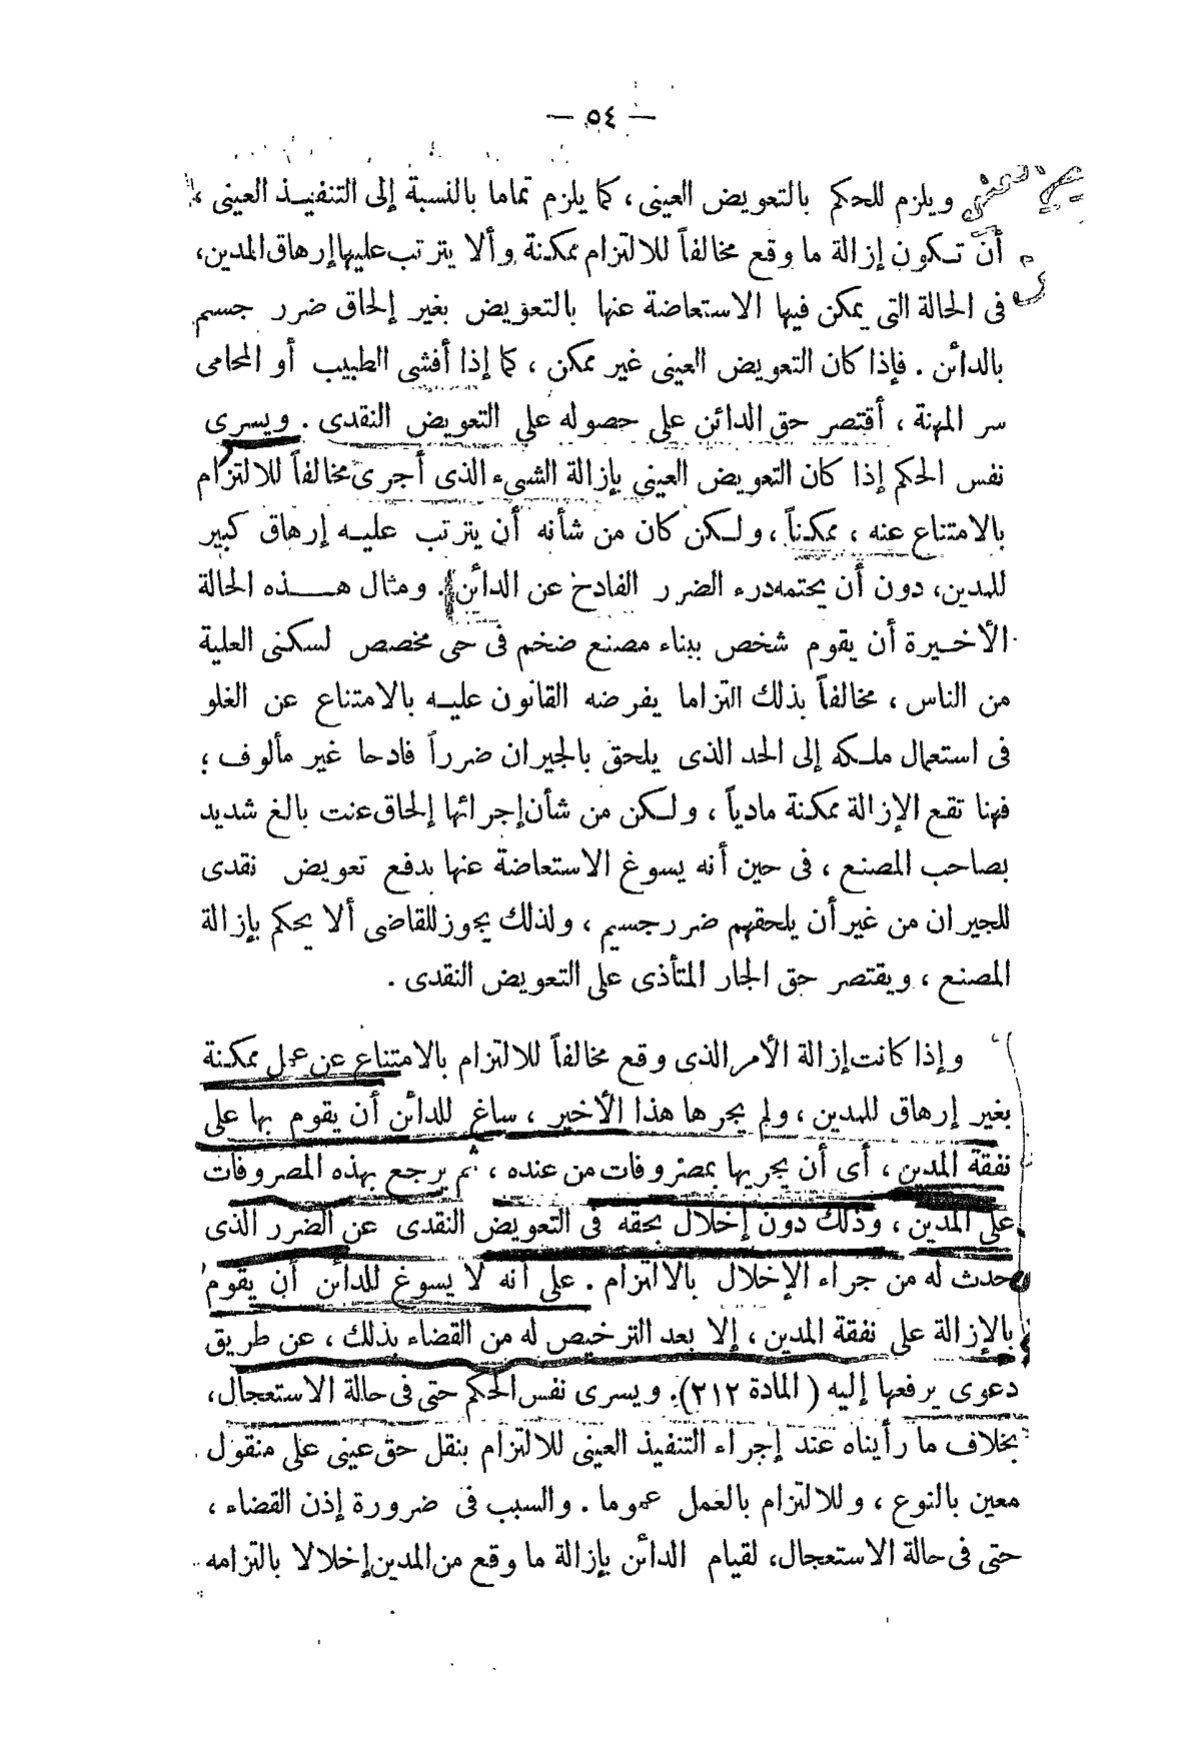 — ٥٤ —
ويلزم للحكم بالتعويض العينى ، كما يلزم تماما بالنسبة إلى التنفيـذ العينى ،
أن تـكون إزالة ما وقع مخالفاً للالتزام ممكنة وألا يترتب عليها إرهاق المدين،
فى الحالة التى يمكن فيها الاستعاضة عنها بالتعويض بغير إلحاق ضرر جسيم
بالدائن . فإذا كان التعويض العينى غير ممكن ، كما إذا أفشى الطبيب أو المحامى
سر المهنة ، أقتصر حق الدائن على حصوله على التعويض النقدى . ويسرى
نفس الحكم إذا كان التعويض العينى بإزالة الشىء الذى أجرى مخالفاً للالتزام
بالامتناع عنه ، ممكناً ، ولـكن كان من شأنه أن يترتب عليـه إرهاق كبير
للمدين، دون أن يحتمه درء الضرر الفادح عن الدائن . ومثال هـــذه الحالة
الأخـيرة أن يقوم شخص ببناء مصنع ضخم فى حى مخصص لسكنى العلية
من الناس ، مخالفاً بذلك التزاما يفرضه القانون عليـه بالامتناع عن الغلو
فى استعمال ملـكه إلى الحد الذى يلحق بالجيران ضرراً فادحا غير مألوف ؛
فهنا تقع الإزالة ممكنة مادياً ، ولـكن من شأن إجرائها إلحاق عنت بالغ شديد
بصاحب المصنع ، فى حين أنه يسوغ الاستعاضة عنها بدفع تعويض نقدى
للجيران من غير أن يلحقهم ضرر جسيم ، ولذلك يجوز للقاضى ألا يحكم بإزالة
المصنع ، ويقتصر حق الجار المتأذى على التعويض النقدى .
وإذا كانت إزالة الأمر الذى وقع مخالفاً للالتزام بالامتناع عن عمل ممكنة
بغير إرهاق للمدين ، ولم يجرها هذا الأخير ، ساغ للدائن أن يقوم بها على
نفقة المدين ، أى أن يجريها بمصروفات من عنده ، ثم يرجع بهذه المصروفات
على المدين ، وذلك دون إخلال بحقه فى التعويض النقدى عن الضرر الذى
حدث له من جراء الإخلال بالالتزام . على أنه لا يسوغ للدائن أن يقوم
بالإزالة على نفقة المدين ، إلا بعد الترخيص له من القضاء بذلك ، عن طريق
دعوى يرفعها إليه ( المادة ٢١٢). ويسرى نفس الحكم حتى فى حالة الاستعجال،
بخلاف ما رأيناه عند إجراء التنفيذ العينى للالتزام بنقل حق عينى على منقول
معين بالنوع ، وللالتزام بالعمل عموما . والسبب فى ضرورة إذن القضاء ،
حتى فى حالة الاستعجال، لقيام الدائن بإزالة ما وقع من المدين إخلالا بالتزامه